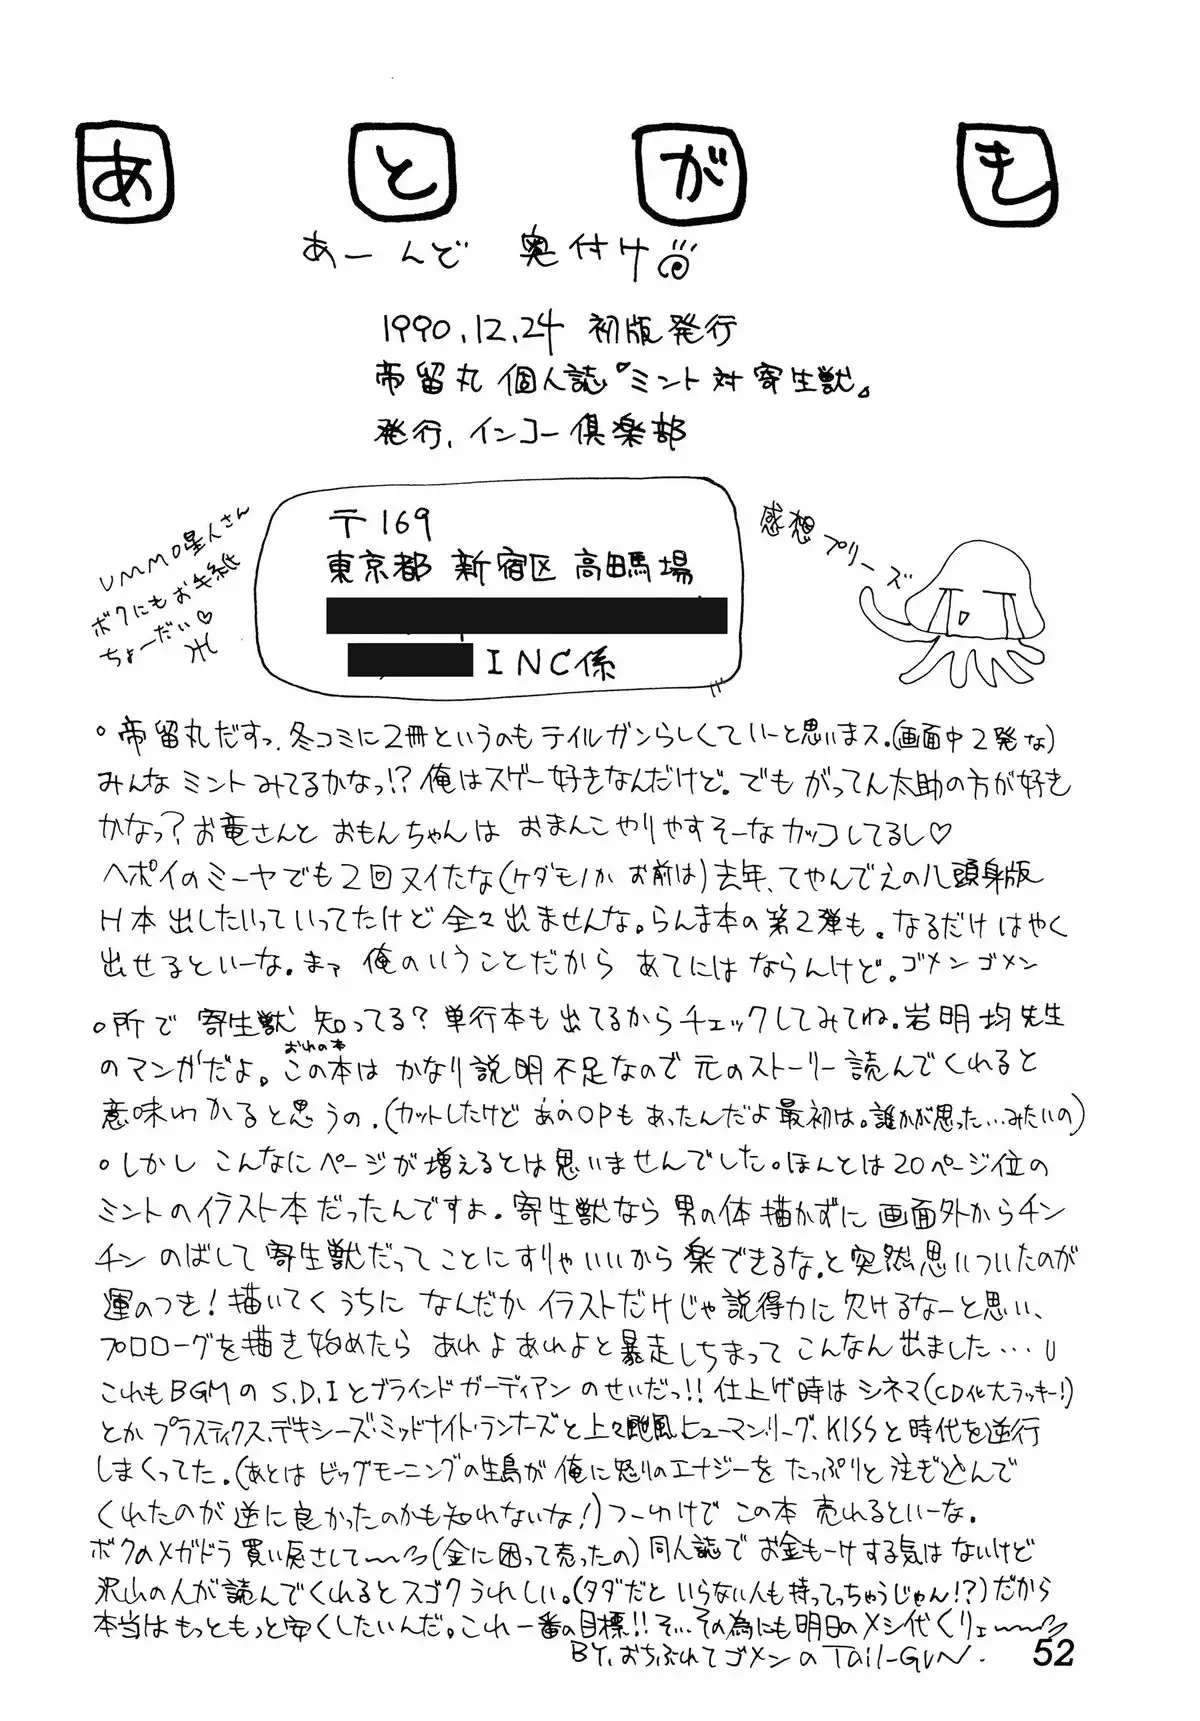 あとがき
あーんど 奥付け
1990.12.24 初版発行
帝留丸 個人誌『ミント対寄生獣』
発行、インコー倶楽部
〒169
東京都 新宿区 高田馬場
INC係
UMMO星人さん
ボクにもお手紙
ちょーだい♡
感想プリーズ
○帝留丸だすっ、冬コミに2冊というのもテイルガンらしくていーと思いまス。(画面中2発な)
みんなミントみてるかなっ!?俺はスゲー好きなんだけど。でも がってん太助の方が好き
かなっ?お竜さんと おもんちゃんは おまんこやりやすそーなカッコしてるし♡
ヘポイのミーヤでも2回ヌイたな(ケダモノか お前は)去年、てやんでえの八頭身版
H本出したいっていってたけど 全々出ませんな。らんま本の第2弾も。なるだけはやく
出せるといーな。まァ 俺のいうことだから あてにはならんけど。ゴメンゴメン
○所で 寄生獣 知ってる?単行本も出てるからチェックしてみてね。岩明均先生
のマンガだよ。この本は かなり説明不足なので 元のストーリー読んでくれると
おれの本
意味わかると思うの.(カットしたけど あのOPも あったんだよ最初は。誰かが思った…みたいの)
○しかし こんなにページが増えるとは思いませんでした。ほんとは20ページ位の
ミントのイラスト本だったんですよ。寄生獣なら 男の体描かずに 画面外からチン
チンのばして 寄生獣だってことにすりゃいいから楽できるな。と突然思いついたのが
運のつき!描いてくうちに なんだかイラストだけじゃ説得力に欠けるなーと思い、
プロローグを描き始めたら あれよあれよと暴走しちまって こんなん出ました…
これもBGMのS.D.Iとブラインドガーディアンのせいだっ!!仕上げ時はシネマ(CD化大ラッキー!)
とか プラスティクス、デキシーズ・ミッドナイト・ランナーズと上々颱風、ヒューマン・リーグ、KISSと時代を逆行
しまくってた。(あとは ビッグモーニングの生島が 俺に怒りのエナジーを たっぷりと注ぎ込んで
くれたのが逆に良かったのかも知れないな!)つーわけで この本 売れるといーな。
ボクのメガドラ買い戻さして〜〜(金に困って売ったの)同人誌で お金もーけする気はないけど
沢山の人が読んでくれるとスゴクうれしい。(タダだと いらない人も持ってっちゃうじゃん!?)だから
本当はもっともっと安くしたいんだ。これ一番の目標!!そ…その為にも明日のメシ代くりェ〜〜
BY. おちぶれてゴメンの Tail-GUN.
52